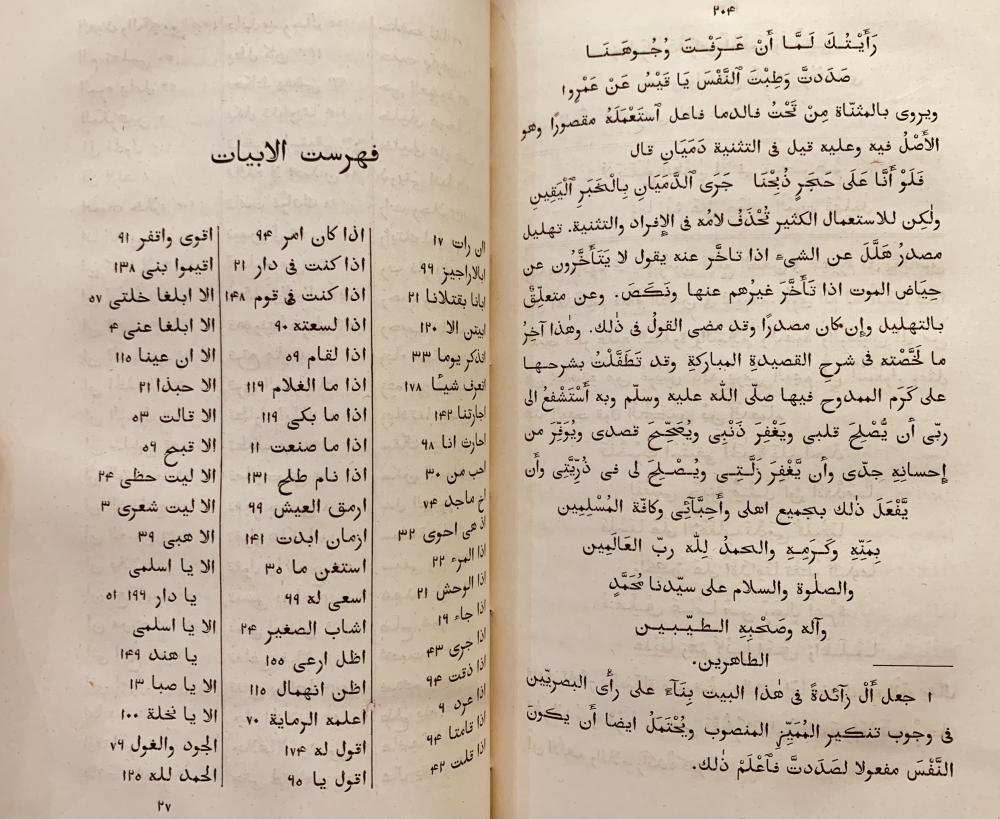 ٢٠٤
رَأَيْتُكَ لَمَّا أَنْ عَرَفْتَ وُجُوهَنَا
صَدَدتَّ وَطِبْتَ ٱلنَّفْسَ يَا قَيْسُ عَنْ عَمْرِو١
ويروى بالمثنّاة مِنْ تَحْتُ فالدما فاعل ٱستَعْمَلَهُ مقصورًا وهو
الأَصْلُ فيه وعليه قيل فى التثنية دَمَيَانِ قال
فَلَوْ أَنَّا عَلَى حَجَرٍ ذُبِحْنَا جَرَى ٱلدَّمَيَانِ بِالْخَبَرِ ٱلْيَقِينِ
ولٰكِن للاستعمال الكثير تُحْذَفُ لامُهُ فى الإفراد والتثنية. تهليل
مصدرُ هَلَّلَ عن الشىء اذا تاخَّر عنه يقول لا يَتَأَخَّرُون عن
حِيَاض الموت اذا تَأَخَّرَ غيرُهم عنها ونَكَصَ. وعن متعلِّقٌ
بالتهليل وإن كان مصدرًا وقد مضى القولُ فى ذٰلك. وهٰذا آخِرُ
ما لَخَّصْته فى شرحِ القصيدةِ المباركةِ وقد تَطَفَّلْتُ بشرحها
على كَرَم الممدوح فيها صلّى اللّه عليه وسلّم وبه أَسْتَشْفِعُ الى
ربّى أن يُّصْلِحَ قلبى ويَغْفِرَ ذَنْبِى ويُصَحِّحَ قصدى ويُوَفِّرَ من
إحسانِهِ جدّى وأن يَّغْفِرَ زَلَّتِى ويُصْلِحَ لى فى ذُرِّيَّتِى وأن
يَّفْعَلَ ذٰلك بجميع اهلى وأَحِبَّآئِى وكافّة المُسْلِمِين
بِمَنِّهِ وكَرَمِهِ والحمدُ لِلّٰه ربّ العَالَمِين
والصلٰوة والسلام على سيّدنا مُحَمَّدٍ
وآله وصَحْبِهِ الطيّبين
الطاهرين.
١ جعل أَلْ زَآئدةً فى هٰذا البيت بِنَآءً على رأى البصريّين
فى وجوب تنكير المُمَيِّزِ المنصوب ويُحْتَمَلُ ايضا أن يكونَ
النَّفْسَ مفعولا لصَدَدتَّ فَٱعْلَمْ ذٰلك.
فهرست الابيات
اان رات ١٧
ابالاراجيز ٩٩
ابانا بقتلانا ٢١
ابيتن الا ١٢٠
اتذكر يوما ٣٣
اتعرف شيئًا ١٧٨
اجارتنا ١٤٢
احارث انا ٩٨
احب من ٣٠
اخ ماجد ٧٤
اذ هى احوى ٣٢
اذا المرء ٢٢
اذا الوحش ٢١
اذا جاء ١٩
اذا جرى ٤٣
اذا ذقت ٩٤
اذا عرد ٩
اذا قامتا ٩٤
اذا قلت ٤٢
اذا كان امر ٩٤
اذا كنت فى دار ٢١
اذا كنت فى قوم ١٤٨
اذا لسعته ٩٠
اذا لقام ٥٩
اذا ما الغلام ١١٩
اذا ما بكى ١١٩
اذا ما صنعت ١١
اذا نام طلح ١٣١
ارمق العيش ٩٩
ازمان ابدت ١٤١
استغن ما ٣٥
اسعى له ٩٩
اشاب الصغير ٢٤
اظل ارعى ١٥٥
اظن انهمال ١١٥
اعلمه الرماية ٧٠
اقول له ١٧٤
اقول يا ٩٥
اقوى واقفر ٩١
اقيموا بنى ١٣٨
الا ابلغا خلتى ٥٧
الا ابلغا عنى ٤
الا ان عينا ١١٥
الا حبذا ٢١
الا قالت ٥٣
الا قبح ٥٩
الا ليت حظى ٢٤
الا ليت شعرى ٣
الا هبى ٣٩
الا يا اسلمى
يا دار ١٩٩ ٥١
الا يا اسلمى
يا هند ١٤٩
الا يا صبا ١٣
الا يا نخلة ١٠٠
الجود والغول ٧٩
الحمد لله ١٢٥
٢٧